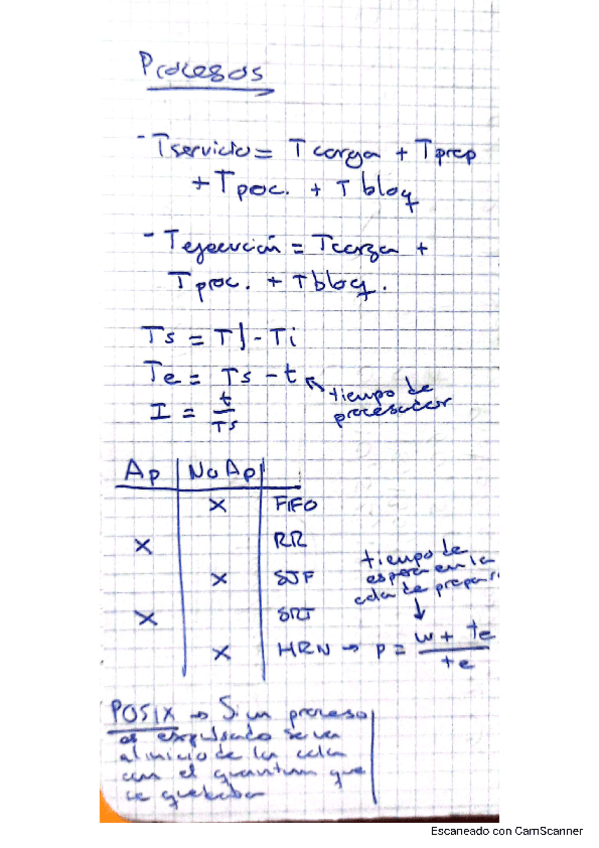 Procesos
- Tservicio = Tcarga + Tprep
+ Tproc. + Tbloq
- Tejecución = Tcarga +
Tproc. + Tbloq.
Ts = Tf - Ti
Te = Ts - t ↖ tiempo de
procesador
I = t/Ts
Ap | No Ap |
x FIFO
x RR
x SJF
x SRT
x HRN → p = (w + te)/te
tiempo de
espera en la
cola de
POSIX → Si un proceso
es expulsado se va
al inicio de la cola
con el quantum que
le quedaba
Escaneado con CamScanner